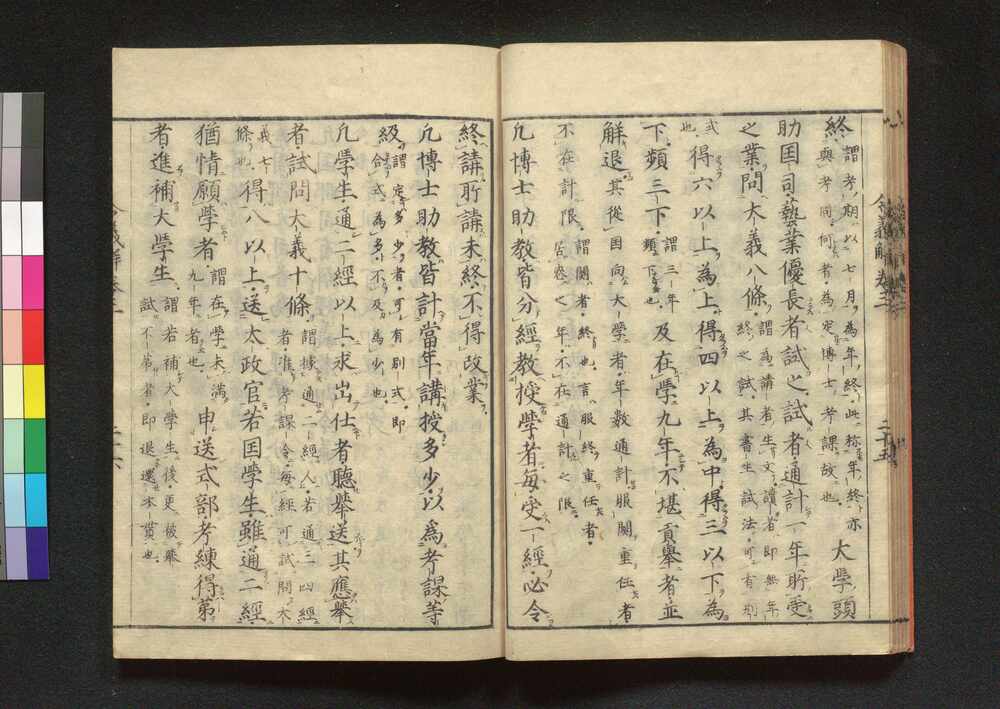 終謂考期以七月為年終此称年終亦与考同何者為定博士考課故也大学頭
助国司藝業優長者試之試者通計一年所受
之業問大義八條謂為講者生文読者即無年終之試其書生試法可有別
式也得六以上為上得四以上為中得三以下為
下頻三下謂三年頻下也及在学九年不堪貢挙者並
解退其従国向大学者年数通計服闋重任者
不在計限謂闋者終也言服終重任者居喪之年不在通計之限
凡博士助教皆分経教授学者毎受一経必令
終講所講未終不得改業
凡博士助教皆計当年講授多少以為考課等
級謂定多少者可有別式即合式為多不及為少也
凡学生通二経以上求出仕者聴挙送其応挙
者試問大義十條謂拠通二経人若通三四経者准考課令毎経可試問大義七
條也得八以上送太政官若国学生雖通二経
猶情願学者謂在学未満九年者也申送式部考練得第
者進補大学生謂若補大学生後更被挙試不第者即退還本貫也